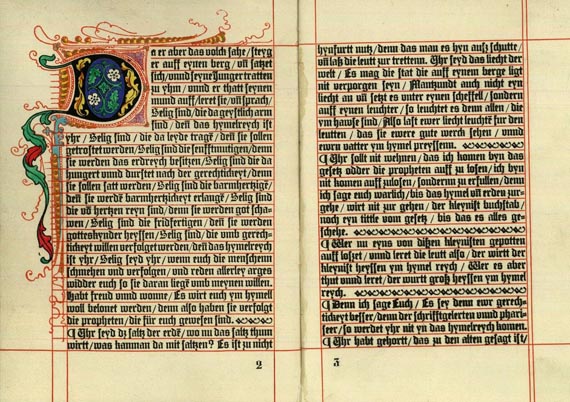 Da er aber das volch sahe/ steyg
er auff eynen berg/ vñ satzet
sich/ vnnd seyne Junger tratten
zu yhm/ vnnd er thatt seynen
mund auff/ leret sie/ vñ sprach/
Selig sind/ die da geystlich arm
sind/ deñ das hymelreych ist
yhr/ Selig sind/ die da leyde tragē/ deñ sie sollen
getrostet werden/ Selig sind die senfftmutigen/ denn
sie werden das erdreych besitzen/ Selig sind die da
hungert vnnd durstet nach der gerechtickeyt/ denn
sie sollen satt werden/ Selig sind die barmhertzigē/
deñ sie werdē barmhertzickeyt erlangē/ Selig sind
die vō hertzen reyn sind/ denn sie werden got scha-
wen/ Selig sind die fridfertigen/ deñ sie werden
gotteskynder heyssen/ Selig sind/ die vmb gerech-
tickeyt willen verfolget werden/ deñ das hymelreych
ist yhr/ Selig seyd yhr/ wenn euch die menschenn
schmehen vnd verfolgen/ vnd reden allerley arges
widder euch so sie daran liegē vmb meynen willen.
Habt freud vnnd wonne/ Es wirt euch ym hymell
woll belonet werden/ denn also haben sie verfolgt
die propheten/ die fur euch gewesen sind.
Yhr seyd dz saltz der erdē/ wo nu das saltz thum
wirtt/ was kannan da mit saltzen? Es ist zu nicht
2
hynfurtt nutz/ denn das man es hyn ausz schutte/
vñ lasz die leutt zur trettenn. Yhr seyd das liecht der
welt/ Es mag die stat die auff eynem berge ligt
nit verporgen seyn/ Mantzundt auch nicht eyn
liecht an vñ setzt es vnter eynen scheffell/ sondern
auff eynen leuchter/ so leuchtet es denn allen/ die
ym hawse sind/ Also last ewer liecht leuchtē fur den
leutten/ das sie ewere gutt werck sehen/ vnnd
ewrn vatter ym hymel preyssenn.
Yhr sollt nit wehnen/ das ich komen byn das
gesetz odder die propheten auff zu losen/ ich byn
nit komen auffzulosen/ sondern zu erfullen/ denn
ich sage euch warlich/ bis das hymel vñ erden zur-
gehe/ wirt nit zur gehen/ der kleynist buchstab/
noch eyn tittle vom gesetz/ bis das es alles ge-
schehe.
Wer nu eyns von diszen kleynisten gepotten
auff loszet/ vnnd leret die leutt also/ der wirtt der
kleynist heyssen ym hymel reych/ Wer es aber
thut vnnd leret/ der wurtt grosz heyssen ym hymel
reych.
Denn ich sage Euch/ Es sey denn ewr gerech-
tickeyt besser/ denn der schrifftgelerten vnnd phari-
seer/ so werdet yhr nit yn das hymelreych komen.
Yhr habt gehortt/ das zu den alten gesagt ist/
3